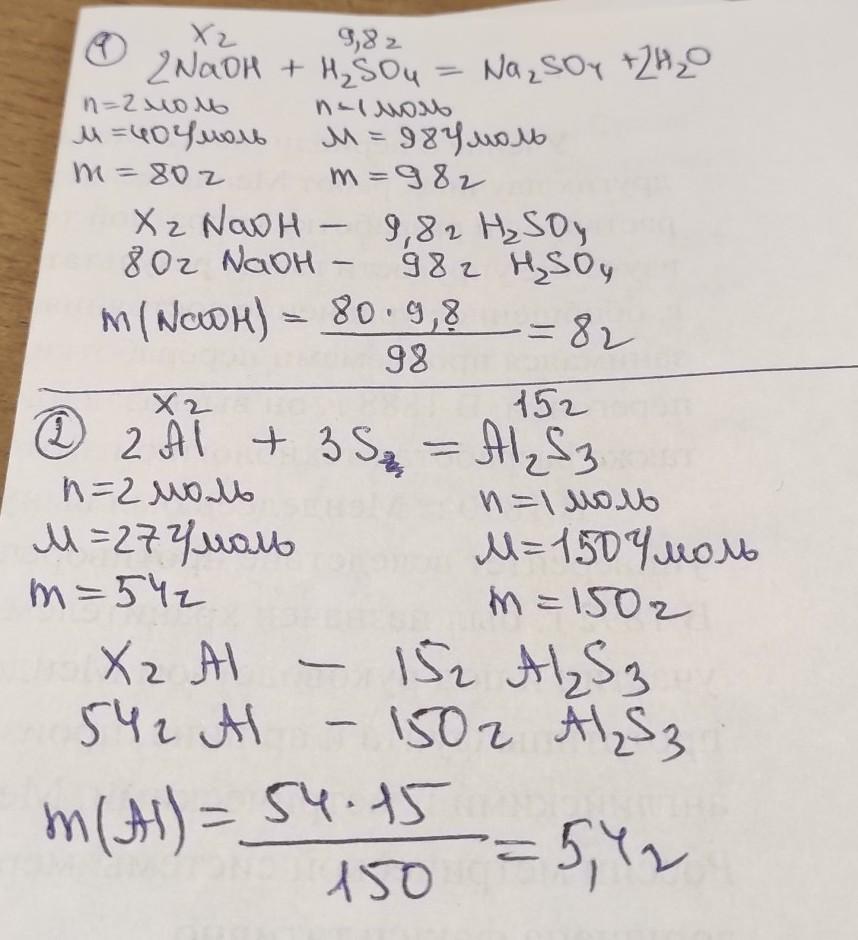 x г 9,8 г
① 2NaOH + H₂SO₄ = Na₂SO₄ + 2H₂O
n = 2 моль n = 1 моль
M = 40 г/моль M = 98 г/моль
m = 80 г m = 98 г
x г NaOH – 9,8 г H₂SO₄
80 г NaOH – 98 г H₂SO₄
m(NaOH) = 80 · 9,8 / 98 = 8 г
x г 15 г
② 2Al + 3S = Al₂S₃
n = 2 моль n = 1 моль
M = 27 г/моль M = 150 г/моль
m = 54 г m = 150 г
x г Al – 15 г Al₂S₃
54 г Al – 150 г Al₂S₃
m(Al) = 54 · 15 / 150 = 5,4 г